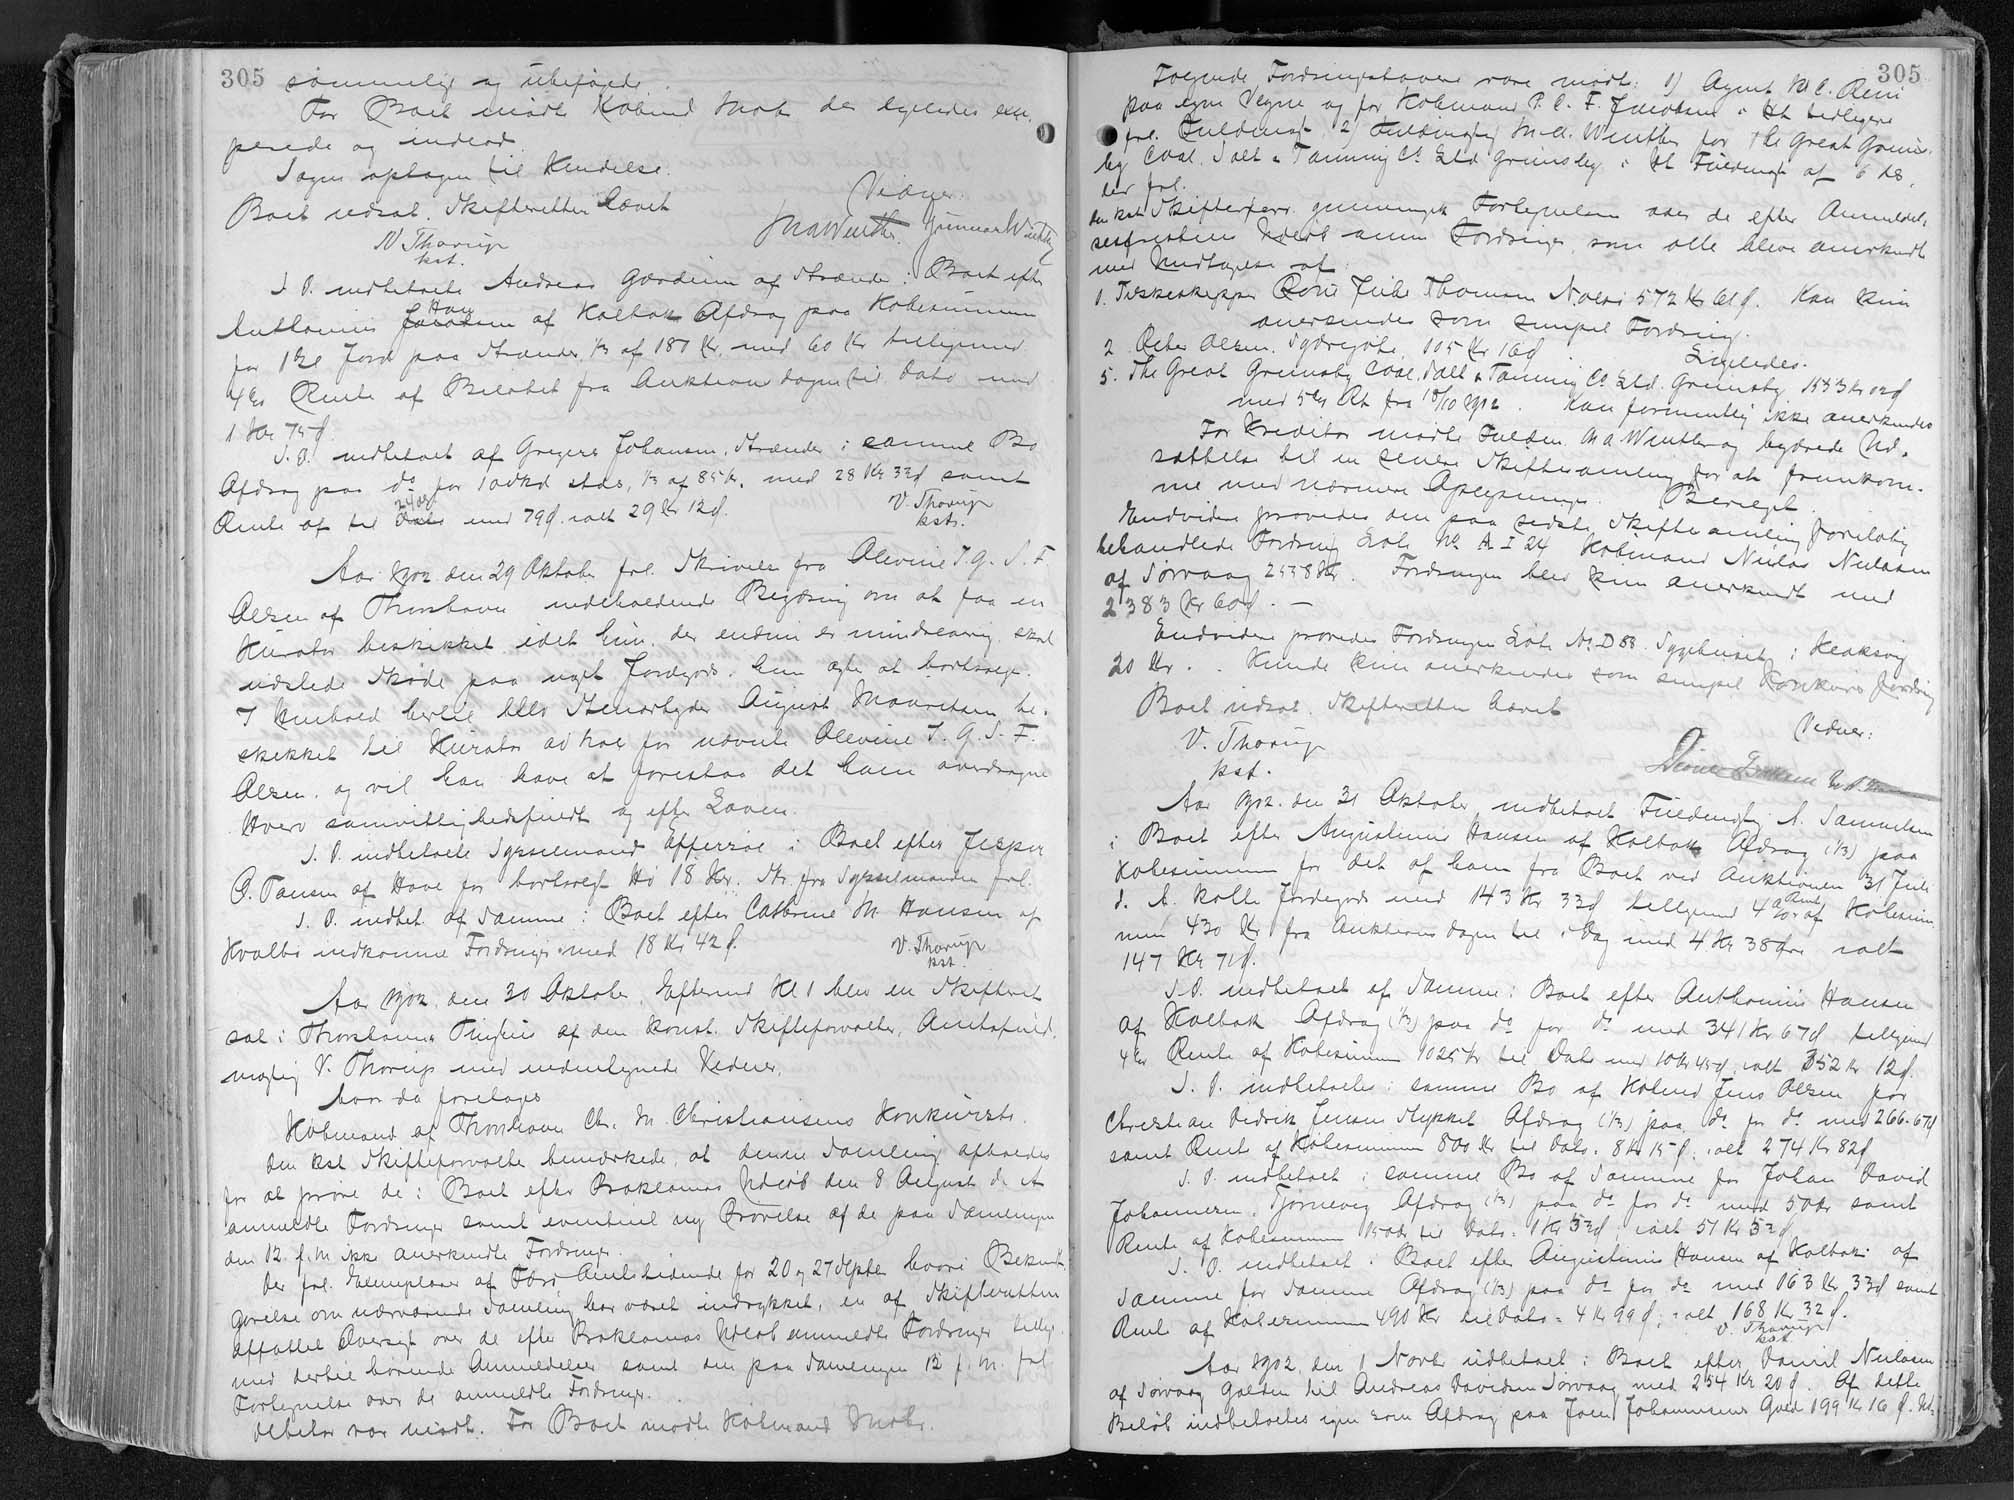 305
sømmelig og ubeføjede.
For Boet mødte Købmd Mohr der ligeledes exci-
perede og indlod.
Sagen optagen til Kendelse.
Boet udsat. Skifteretten hævet
Vidner.
V Thorup
kst.
MAWinther. Gunnar Winther
S. D. indbetalte Andreas Gaardum af Strænder i Boet efter
Anthonius Hansen af Kolbak Afdrag paa Købesummen
for Jord paa Strænder, 1/3 af 180 Kr. med 60 Kr tilligemed
4% Rente af Beløbet fra Auktionsdagen til Dato med
1 Kr 75 ø.
S. D. indbetalt af Gregers Johansen, Strænder i samme Bo
Afdrag paa do for 1/3 af 85 Kr. med 28 Kr 33 ø samt
Rente af til Dato med 79 ø. ialt 29 Kr 12 ø.
V. Thorup
kst.
Aar 1902 den 29 Oktober frl. Skrivelse fra Olevine J. G. S. F.
Olsen af Thorshavn indeholdende Begæring om at faa en
Kurator beskikket idet hun, der endnu er mindreaarig, skal
udstede Skøde paa noget Jordegods, hun agter at bortsælge.
I Henhold hertil blev Stenarbejder August Mouritsen be-
skikket til Kurator ad hoc for nævnte Olevine J. G. S. F.
Olsen, og vil han have at forestaa det ham overdragne
Hverv samvittighedsfuldt og efter Loven.
S. D. indbetalte Sysselmand Effersøe i Boet efter Jesper
P. Hansen af Hove for bortsolgt Hø 18 Kr. Skr. fra Sysselmanden frl.
S. D. indbet. af Samme i Boet efter Cathrine M. Hansen af
Hvalbø indkomne Fordringer med 18 Kr 42 ø.
V. Thorup
kst.
Aar 1902, den 30 Oktober, Eftermd Kl 1 blev en Skifteret
sat i Thorshavns Tinghus af den konst. Skifteforvalter, Amtsfuld-
mægtig V. Thorup med undertegnede Vidner,
hvor da foretages
Købmand af Thorshavn Chr. M. Christiansens Konkursbo.
Den kst Skifteforvalter bemærkede, at denne Samling afholdes
for at prøve de i Boet efter Proklamas Udløb den 8 August d. A
anmeldte Fordringer samt eventuel ny Prøvelse af de paa Samlingen
den 12. f. M ikke anerkendte Fordringer.
Der frl. Exemplarer af Færø Amtstidende for 20 og 27 Septbr hvori Bekendt-
gørelse om nærværende Samling har været indrykket, en af Skifteretten
affattet Oversigt over de efter Proklamas Udløb anmeldte Fordringer tillige
med dertil hørende Anmeldelser samt den paa Samlingen 12 f. M. frl
Fortegnelse over de anmeldte Fordringer.
Debitor var mødt. For Boet mødte Købmand Mohr.
305
Følgende Fordringshavere vare mødt: 1) Agent M C. Reni
paa egne Vegne og for Købmand P. C. F. Jacobsen i Ht tidligere
frl. Fuldmagt. 2) Fuldmægtig M. A. Winther for The Great Grims-
by Coal, Salt & Tanning Co Ltd Grimsby i Ht Fuldmagt af 6 ds.
der frl.
Den kst Skifteforv. gennemgik Fortegnelsen over de efter Anmeldel-
sesfristens Udløb anm Fordringer, som alle bleve anerkendt
med Undtagelse af
1. Fiskeskipper Thomsen Nolsø 572 Kr 61 ø. Kan kun
anerkendes som simpel Fordring.
2 Peter Olsen. Sydregøte. 105 Kr 16 ø Ligeledes.
5. The Great Grimsby Coal, Salt & Tanning Co Ltd. Grimsby. 1533 Kr 02 ø
med 5% Rt fra 18/10 1902. Kan formentlig ikke anerkendes
For Kreditor mødte Fuldm. M A Winther og begærede Ud-
sættelse til en senere Skiftesamling for at fremkom-
me med nærmere Oplysninger. Bevilget.
Endvidere prøvedes den paa sidste Skiftesamling foreløbig
behandlede Fordring Løb. No A I 24 Købmand Niclas Niclasen
af Sørvaag 2438 Kr. Fordringen blev kun anerkendt med
2383 Kr 60 ø. —
Endvidere prøvedes Fordringen Løb. No. D 88 Sygehuset i Klaksvig
20 Kr. Kunde kun anerkendes som simpel Konkurs fordring
Boet udsat. Skifteretten hævet
Vidner:
V. Thorup
kst.
Aar 1902. den 31 Oktober indbetalt Fuldmægtig A. Samuelsen
i Boet efter Augustinus Hansen af Kolbak Afdrag (1/3) paa
Købesummen for det af ham fra Boet ved Auktionen 31 Juli
d. A. købte Jordegods med 143 Kr 33 ø tilligemed 4% Rente af Købesum-
men 430 Kr fra Auktionsdagen til i Dag med 4 Kr 38 Øre ialt
147 Kr 71 ø.
S. D. indbetalt af Samme i Boet efter Anthonius Hansen
af Kolbak Afdrag (1/3) paa do for do med 341 Kr 67 ø tilligemed
4% Rente af Købesummen 1025 Kr til Dato med 10 Kr 45 ø, ialt 352 Kr 12 ø.
S. D. indbetaltes i samme Bo af Købmd Jens Olsen for
Christian Dedrik Jensen Afdrag (1/3) paa do for do med 266-67 ø
samt Rente af Købesummen 800 Kr til Dato. 8 Kr 15 ø, ialt 274 Kr 82 ø
S. D. indbetalt i samme Bo af Samme for Johan David
Johannesen, Tjørnevig Afdrag (1/3) paa do for do med 50 Kr samt
Rente af Købesummen 150 Kr til Dato = 1 Kr 53 ø, ialt 51 Kr 53 ø
S. D. indbetalt i Boet efter Augustinus Hansen af Kolbak af
Samme for Samme Afdrag (1/3) paa do for do med 163 Kr 33 ø samt
Rente af Købesummen 490 Kr til Dato = 4 Kr 99 ø; ialt 168 Kr 32 ø.
V. Thorup
kst
Aar 1902 den 1 Novbr udbetalt i Boet efter Daniel Niclasen
af Sørvaag Gælden til Andreas Davidsen Sørvaag med 254 Kr 20 ø. Af dette
Beløb indbetaltes igen som Afdrag paa Joen Johannesens Gæld 199 Kr 16 ø.